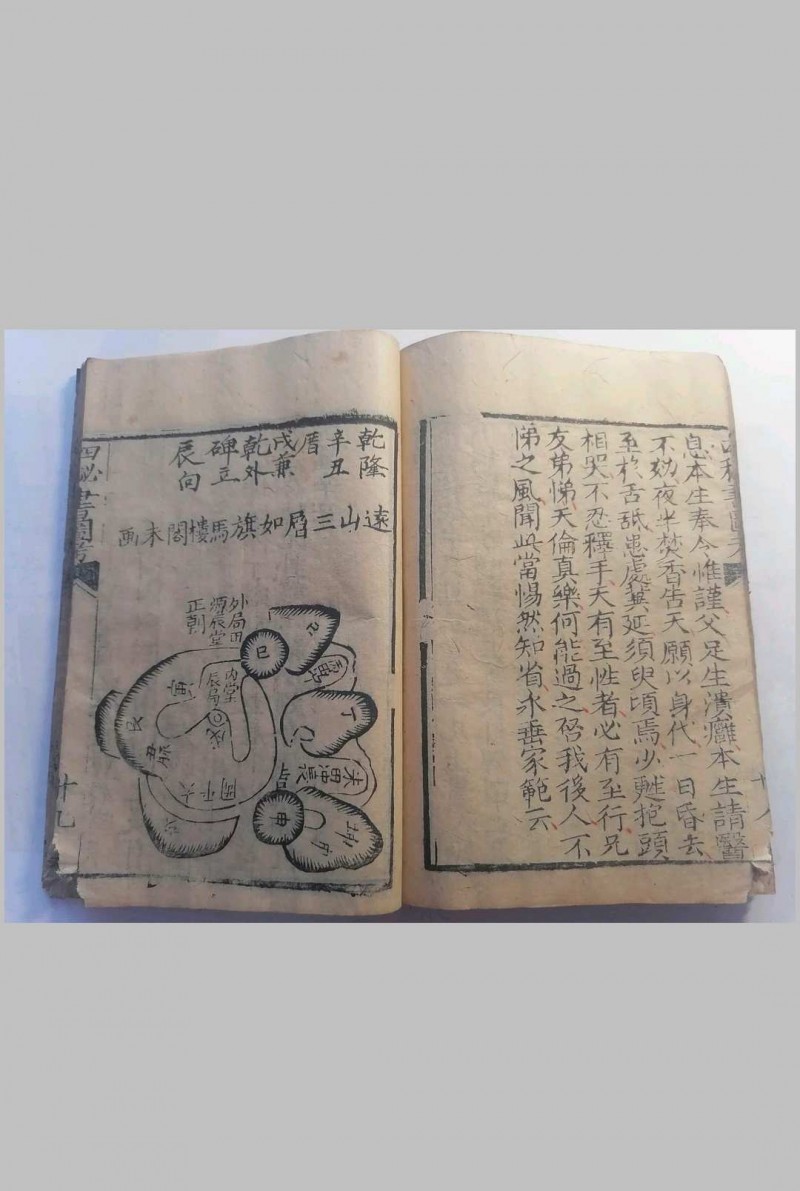 息本生奉令惟謹父足生潰癰本生請醫
不効夜半焚香告天願以身代一日昏去
至於舌舐患處冀延須臾頃焉少甦抱頭
相哭不忍釋手夭有至性者必有至行兄
友弟悌天倫真樂何能過之啓我後人不
悌之風聞此當惕然知省永垂家範云
十九
乾隆
辛丑
厝
戌兼
乾外
碑立
辰向
遠山三層如旗馬樓閣未画
外局田
源辰堂
正朝
内堂
辰局
巳
丙
丁
未
坤
申
戌
寅
艮